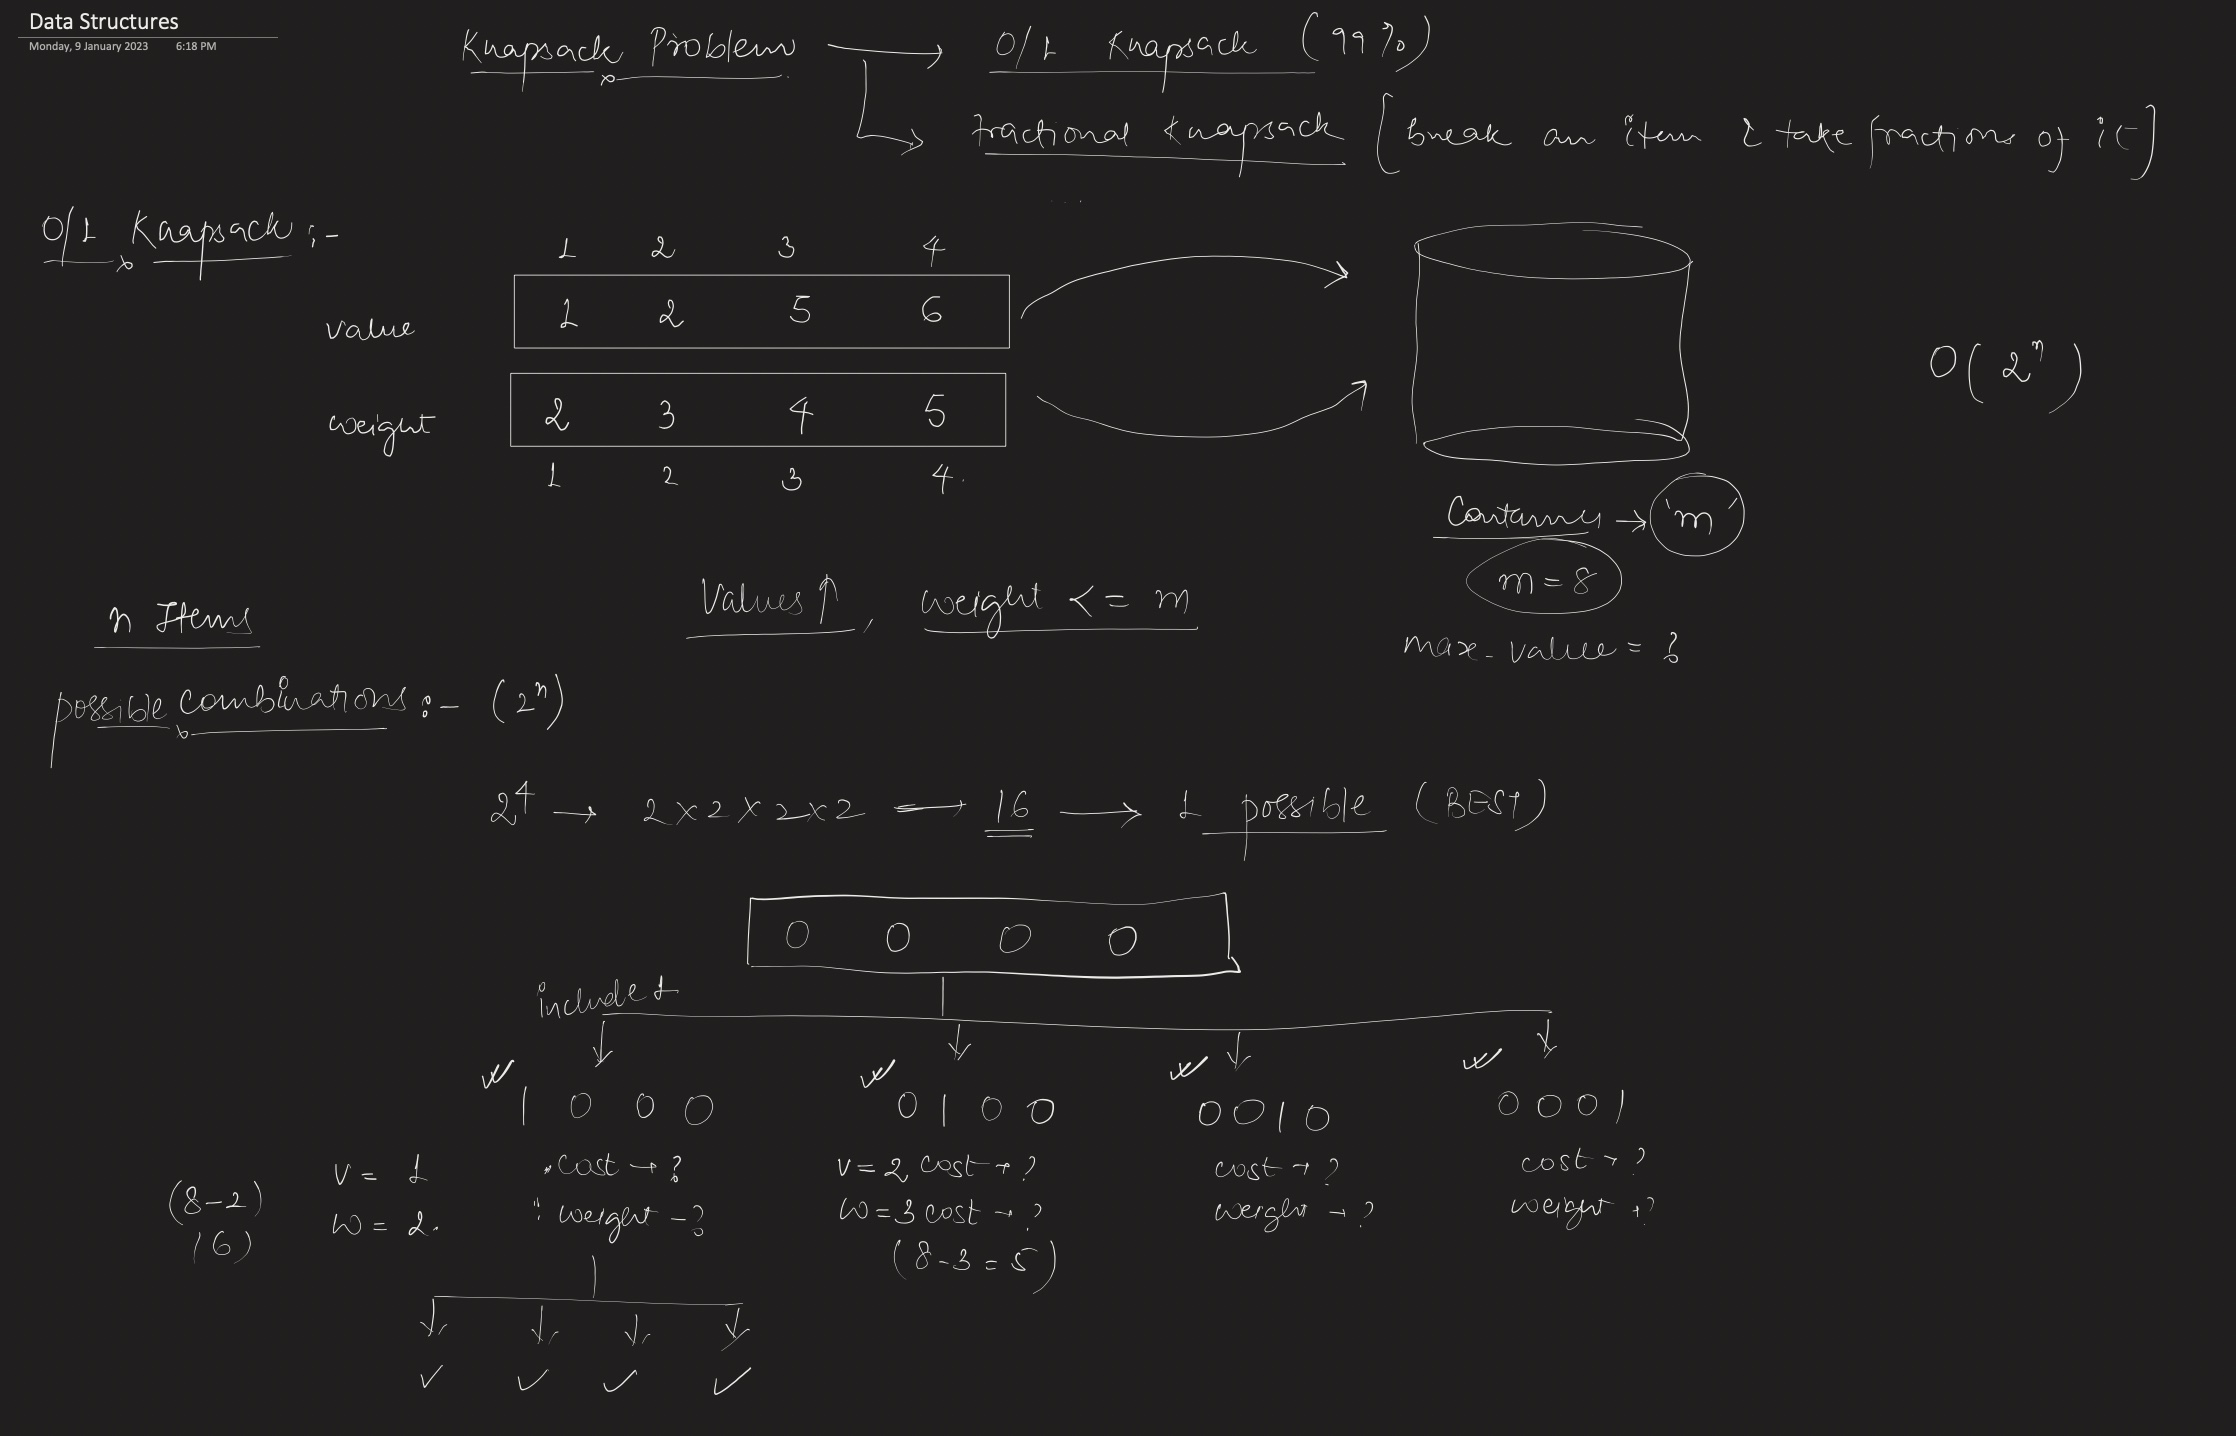 Data Structures
Monday, 9 January 2023 6:18 PM
Knapsack Problem → 0/1 Knapsack (99%)
Fractional Knapsack [break an item & take fractions of it]
0/1 Knapsack :-
1 2 3 4
value 1 2 5 6
weight 2 3 4 5
1 2 3 4
O(2ⁿ)
Container → 'm'
m = 8
max-value = ?
Values ↑, weight <= m
n Items
possible combinations :- (2ⁿ)
2⁴ → 2 x 2 x 2 x 2 → 16 → 1 possible (BEST)
0 0 0 0
include 1
1 0 0 0 0 1 0 0 0 0 1 0 0 0 0 1
(8-2) v = 1 cost → ? v = 2 cost → ? cost → ? cost → ?
(6) w = 2 weight - ? w = 3 cost → ? weight → ? weight → ?
(8-3 = 5)